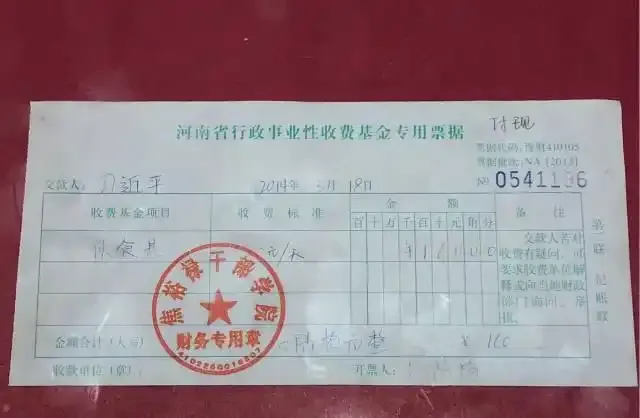 河南省行政事业性收费基金专用票据
付现
票据代码：豫财410105
票据批次：NA [2013]
交款人：习近平
2014年3月18日
№ 0541196
收费基金项目
收费标准
金额
备注
百十万千百十元角分
伙食费
元/天
¥16000
交款人若对
收费有疑问，可
要求收费单位解
释或向当地财政
部门查询、举
报。
第一联 记账联
焦裕禄干部学院
财务专用章
金额合计（大写）
陆拾元整
¥ 160
收款单位（章）：
开票人：